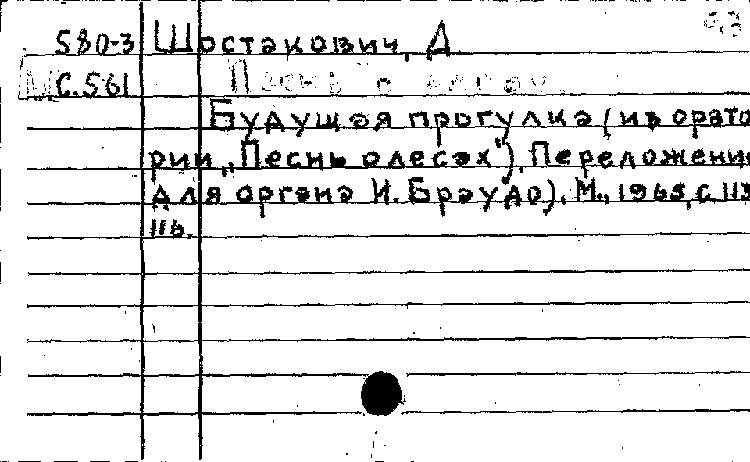 580-3 Шостакович, Д
С.561 Песнь о лесах.
Будущая прогулка (из орато
рии „Песнь о лесах"). Переложение
для органа И. Браудо). М., 1965, с. 113
116.